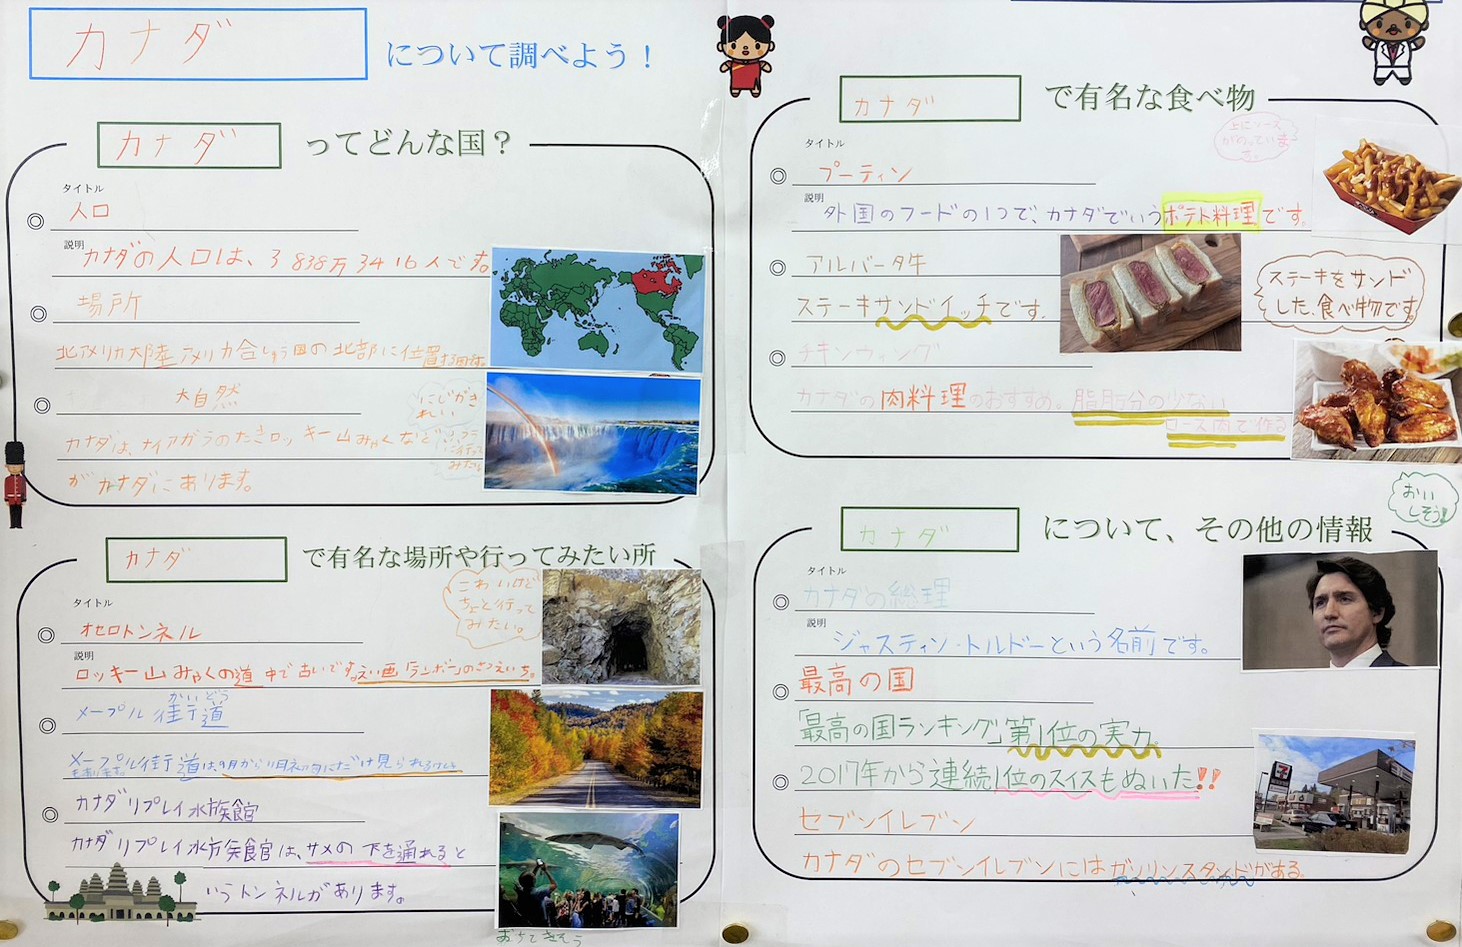 カナダ
について調べよう！
カナダ
ってどんな国？
タイトル
人口
説明
カナダの人口は、3838万3416人です。
場所
北アメリカ大陸アメリカ合しゅう国の北部に位置する国です。
大自然
にじがき
れい
カナダは、ナイアガラのたきロッキー山みゃくなど
行って
みたい
がカナダにあります。
カナダ
で有名な場所や行ってみたい所
こわいけど
ちょと行って
みたい。
タイトル
オセロトンネル
説明
ロッキー山みゃくの道中で古いです。えい画「ランボー」のさつえいち。
かいどう
メープル街道
メープル街道は、9月から11月初旬にだけ見られる
カナダリプレイ水族館
カナダリプレイ水族館は、サメの下を通れると
いうトンネルがあります。
おちてきそう
カナダ
で有名な食べ物
上にソース
がのっていま
す。
タイトル
プーティン
説明
外国のフードの1つで、カナダでいうポテト料理です。
アルバータ牛
ステーキサンドイッチです。
ステーキをサンド
した、食べ物です。
チキンウィング
カナダの肉料理のおすすめ。脂肪分の少ない
ロース肉で作る
おいし
そう!
カナダ
について、その他の情報
タイトル
カナダの総理
説明
ジャスティン・トルドーという名前です。
最高の国
「最高の国ランキング」第1位の実力。
2017年から連続1位のスイスもぬいた!!
セブンイレブン
カナダのセブンイレブンにはガソリンスタンドがある。